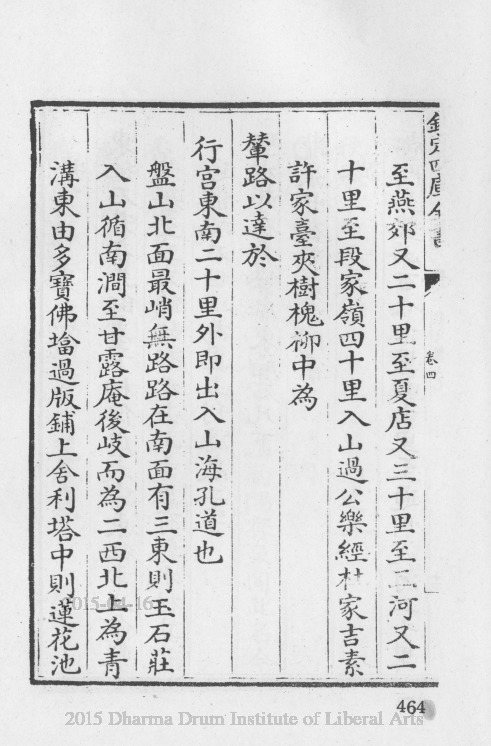 欽定四庫全書
卷四
至燕郊又二十里至夏店又三十里至三河又二
十里至段家嶺四十里入山過公樂經杜家吉素
許家臺夾樹槐栁中為
輦路以達於
行宫東南二十里外即出入山海孔道也
盤山北面最峭無路路在南面有三東則玉石莊
入山循南澗至甘露庵後岐而為二西北上為青
溝東由多寶佛墖過版鋪上舍利塔中則蓮花池
2015-04-16
464
2015 Dharma Drum Institute of Liberal Arts